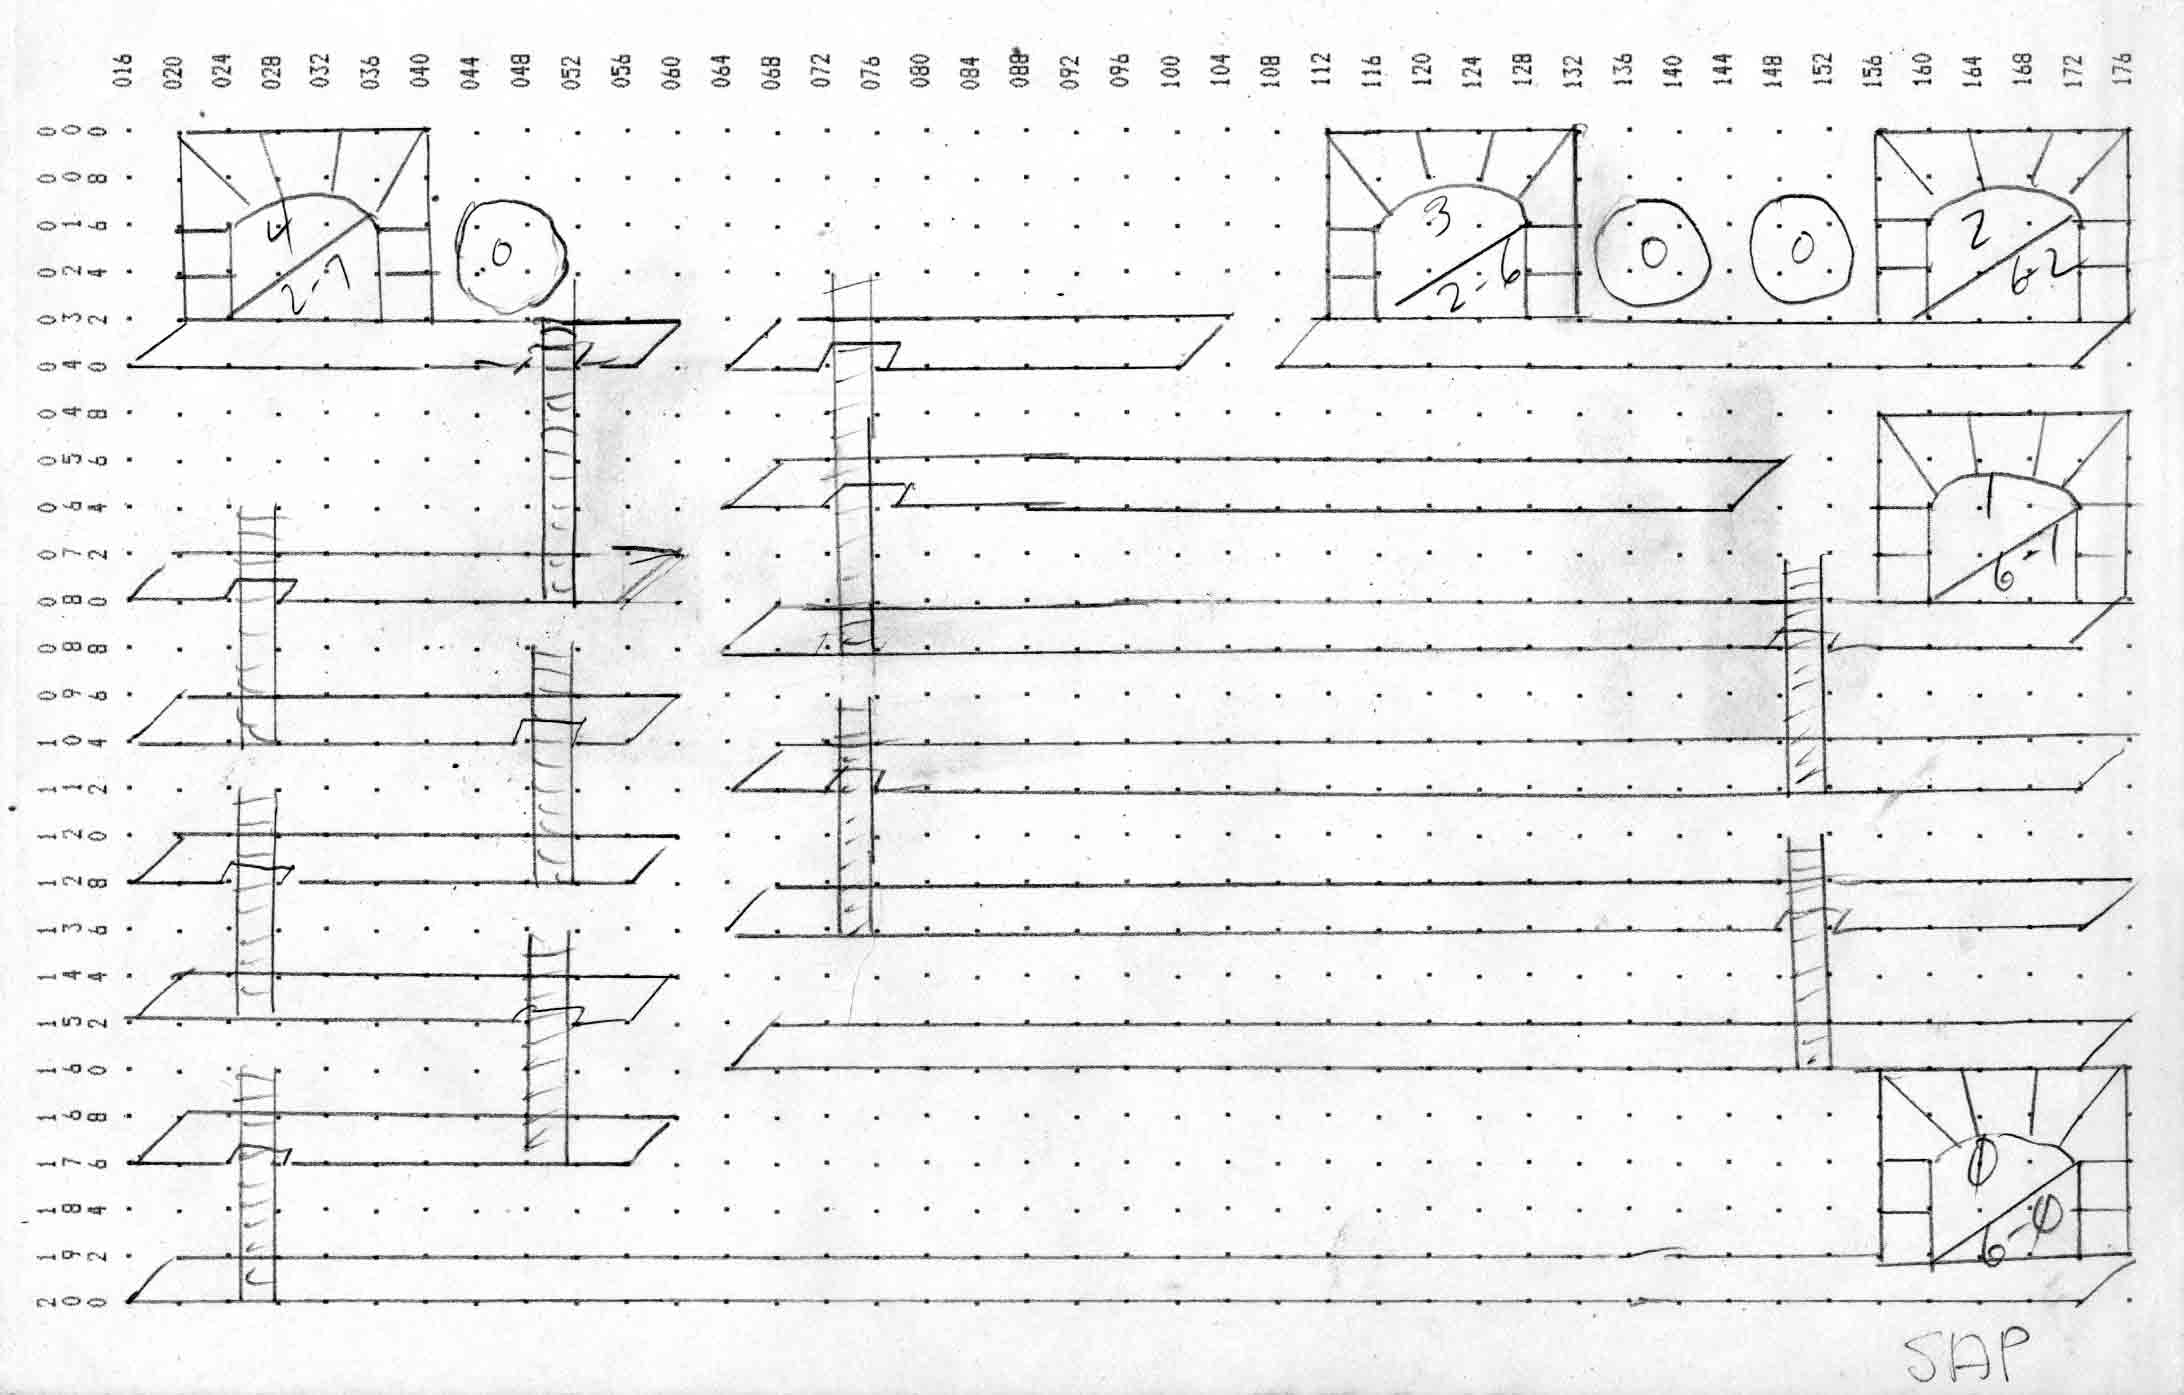 016 020 024 028 032 036 040 044 048 052 056 060 064 068 072 076 080 084 088 092 096 100 104 108 112 116 120 124 128 132 136 140 144 148 152 156 160 164 168 172 176
000
008
016
024
032
040
048
056
064
072
080
088
096
104
112
120
128
136
144
152
160
168
176
184
192
200
4
2-7
0
3
2-6
0
0
2
6-2
1
6-1
0
6-0
SAP